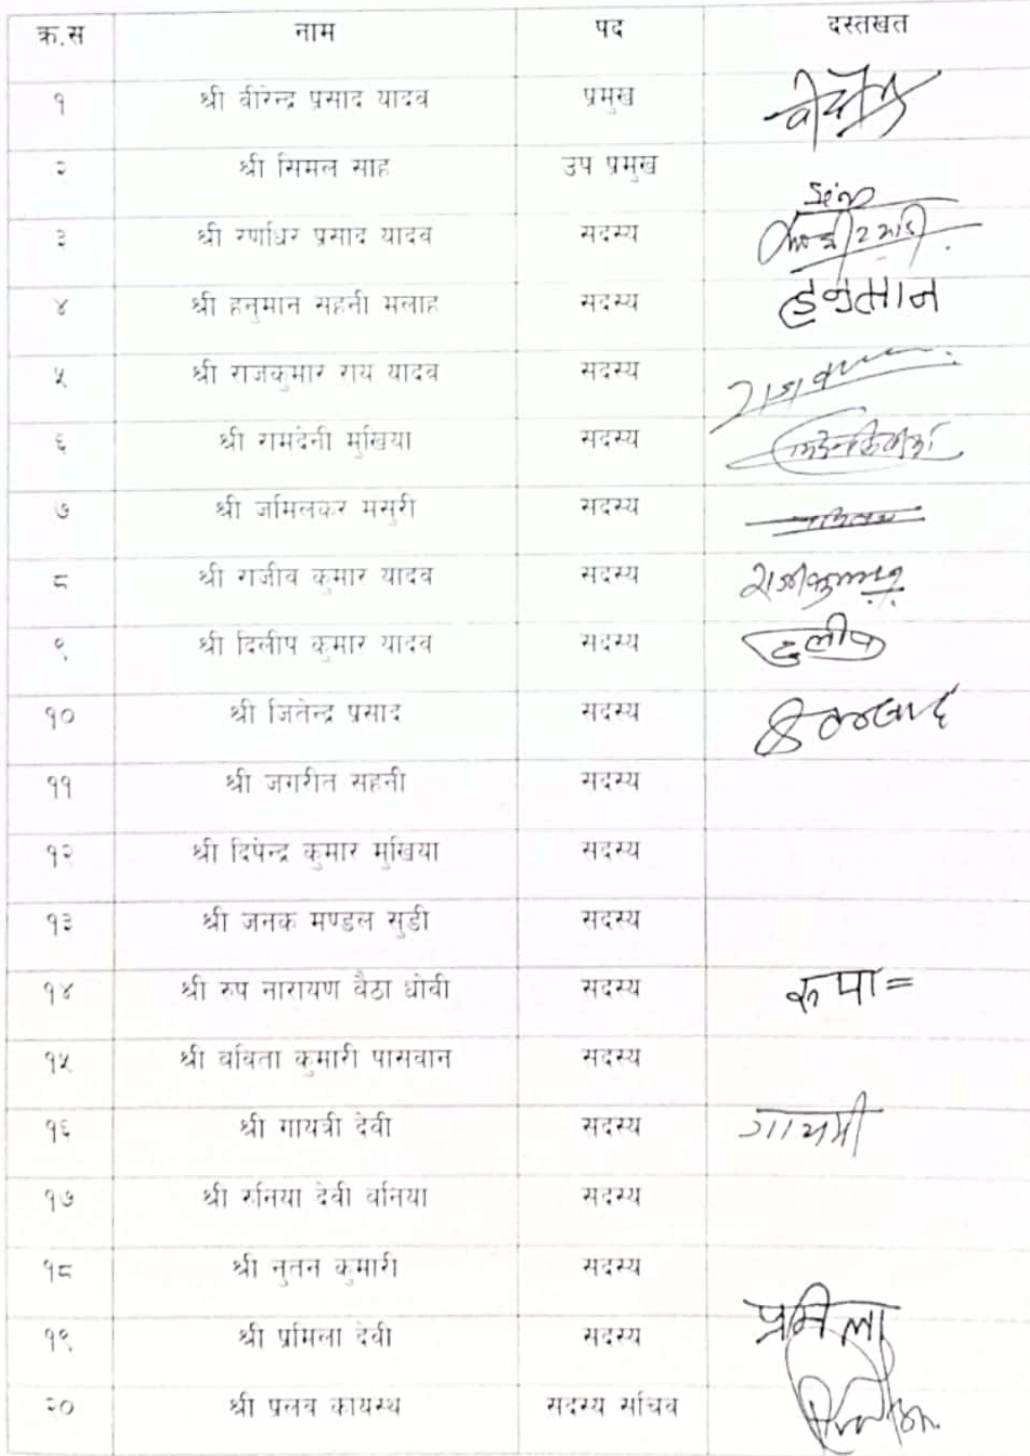 क्र.स नाम पद दस्तखत
१ श्री वीरेन्द्र प्रसाद यादव प्रमुख
२ श्री सिमल साह उप प्रमुख
३ श्री रणधिर प्रसाद यादव सदस्य
४ श्री हनुमान सहनी मलाह सदस्य हनुमान
५ श्री राजकुमार राय यादव सदस्य
६ श्री रामदेनी मुखिया सदस्य
७ श्री जमिलकर मसुरी सदस्य
८ श्री राजीव कुमार यादव सदस्य
९ श्री दिलीप कुमार यादव सदस्य
१० श्री जितेन्द्र प्रसाद सदस्य
११ श्री जगरीत सहनी सदस्य
१२ श्री दिपेन्द्र कुमार मुखिया सदस्य
१३ श्री जनक मण्डल सुडी सदस्य
१४ श्री रुप नारायण बैठा धोवी सदस्य
१५ श्री वविता कुमारी पासवान सदस्य
१६ श्री गायत्री देवी सदस्य
१७ श्री रुनिया देवी वनिया सदस्य
१८ श्री नुतन कुमारी सदस्य
१९ श्री प्रमिला देवी सदस्य प्रमिला
२० श्री प्रलव कायस्थ सदस्य सचिव